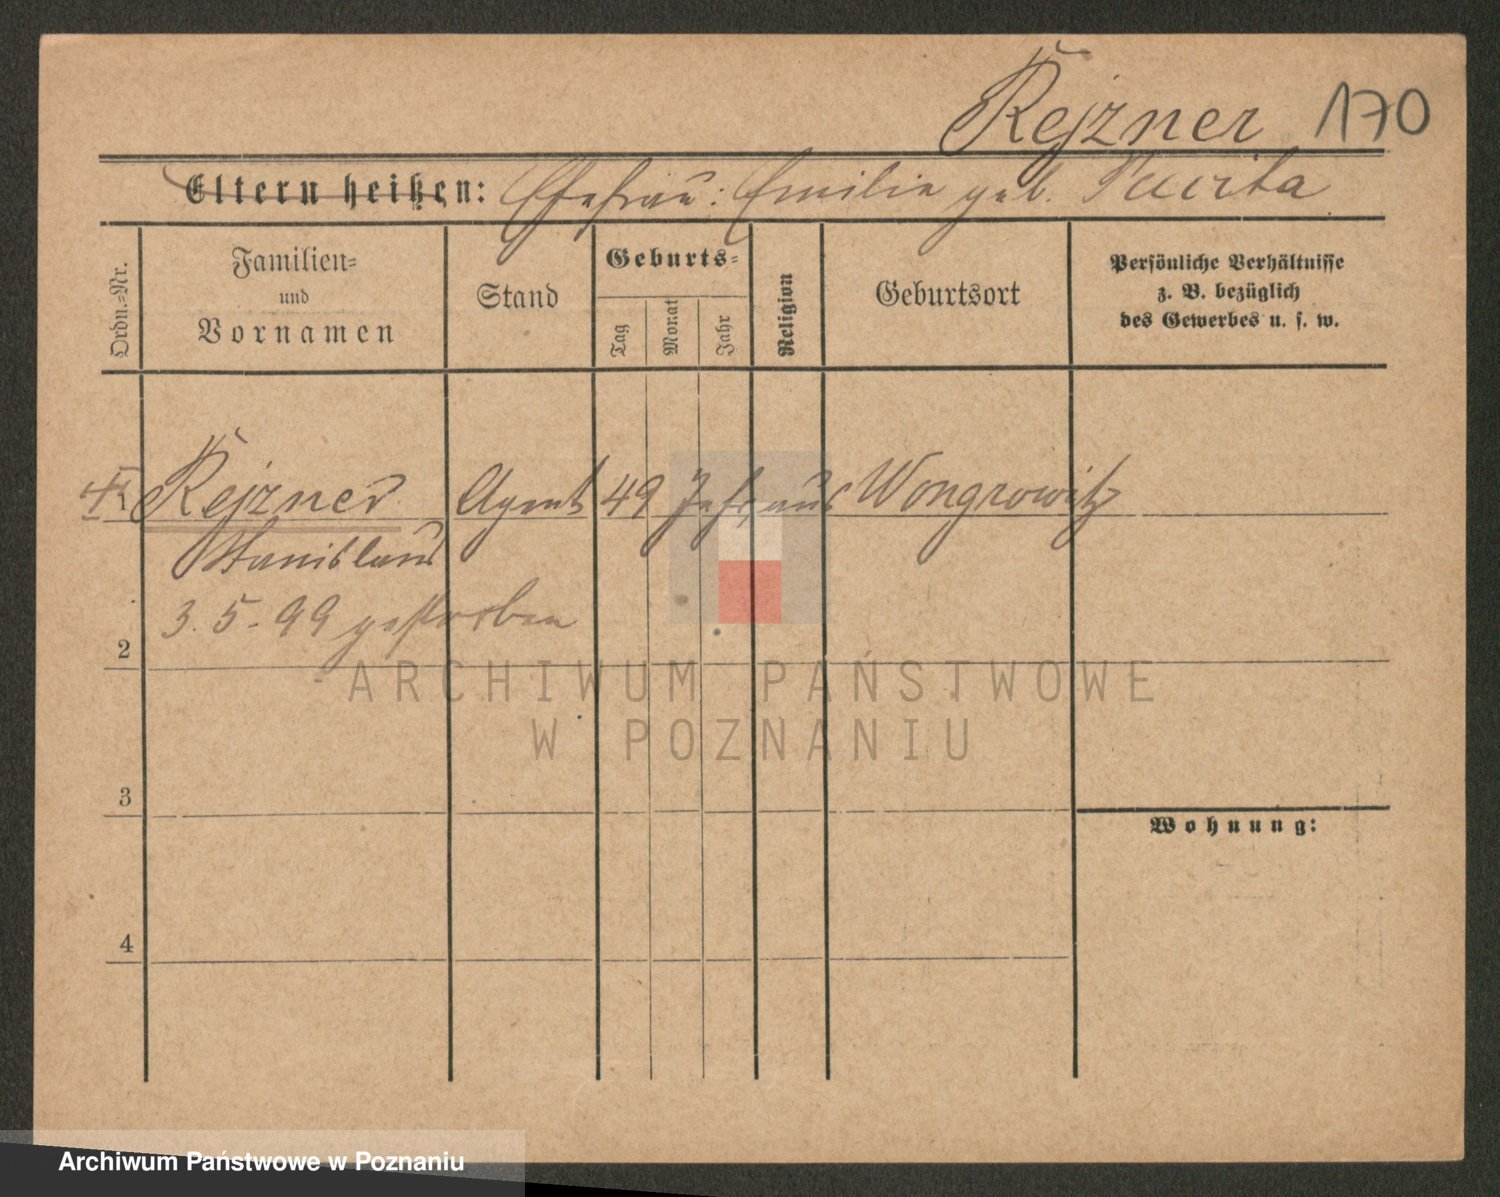 Rejzner 170
Eltern heißen: Ehefrau: Emilie geb.
Ordn.=Nr.
Familien=
und
Vornamen
Stand
Geburts=
Tag
Monat
Jahr
Religion
Geburtsort
Persönliche Verhältnisse
z. B. bezüglich
des Gewerbes u. s. w.
1 Rejzner Agent 49 Jahr aus Wongrowitz
Stanislaus
3. 5. 99 gestorben
2
ARCHIWUM PAŃSTWOWE
W POZNANIU
3
Wohnung:
4
Archiwum Państwowe w Poznaniu